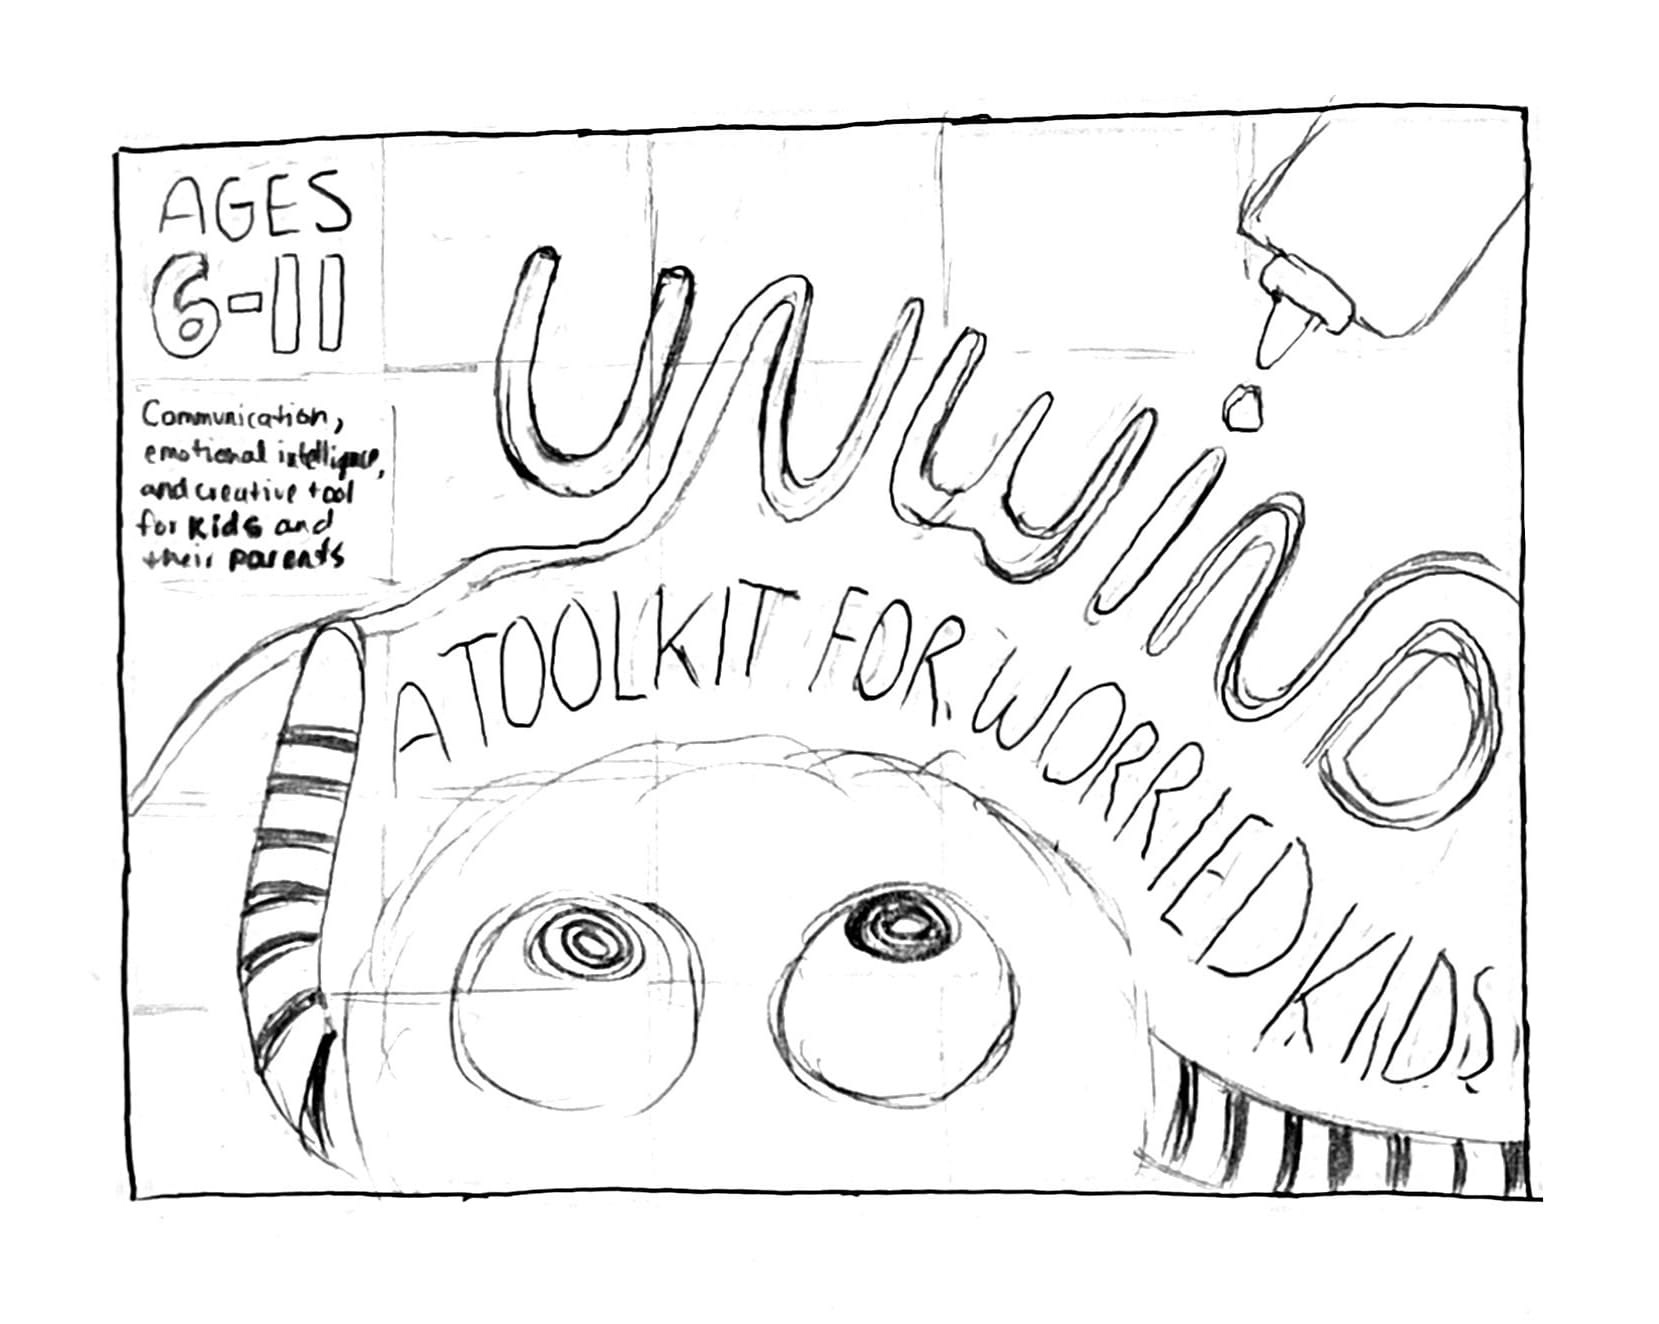 AGES
6-11
Communication,
emotional intelligence,
and creative tool
for kids and
their parents
UNWIND
A TOOLKIT FOR WORRIED KIDS